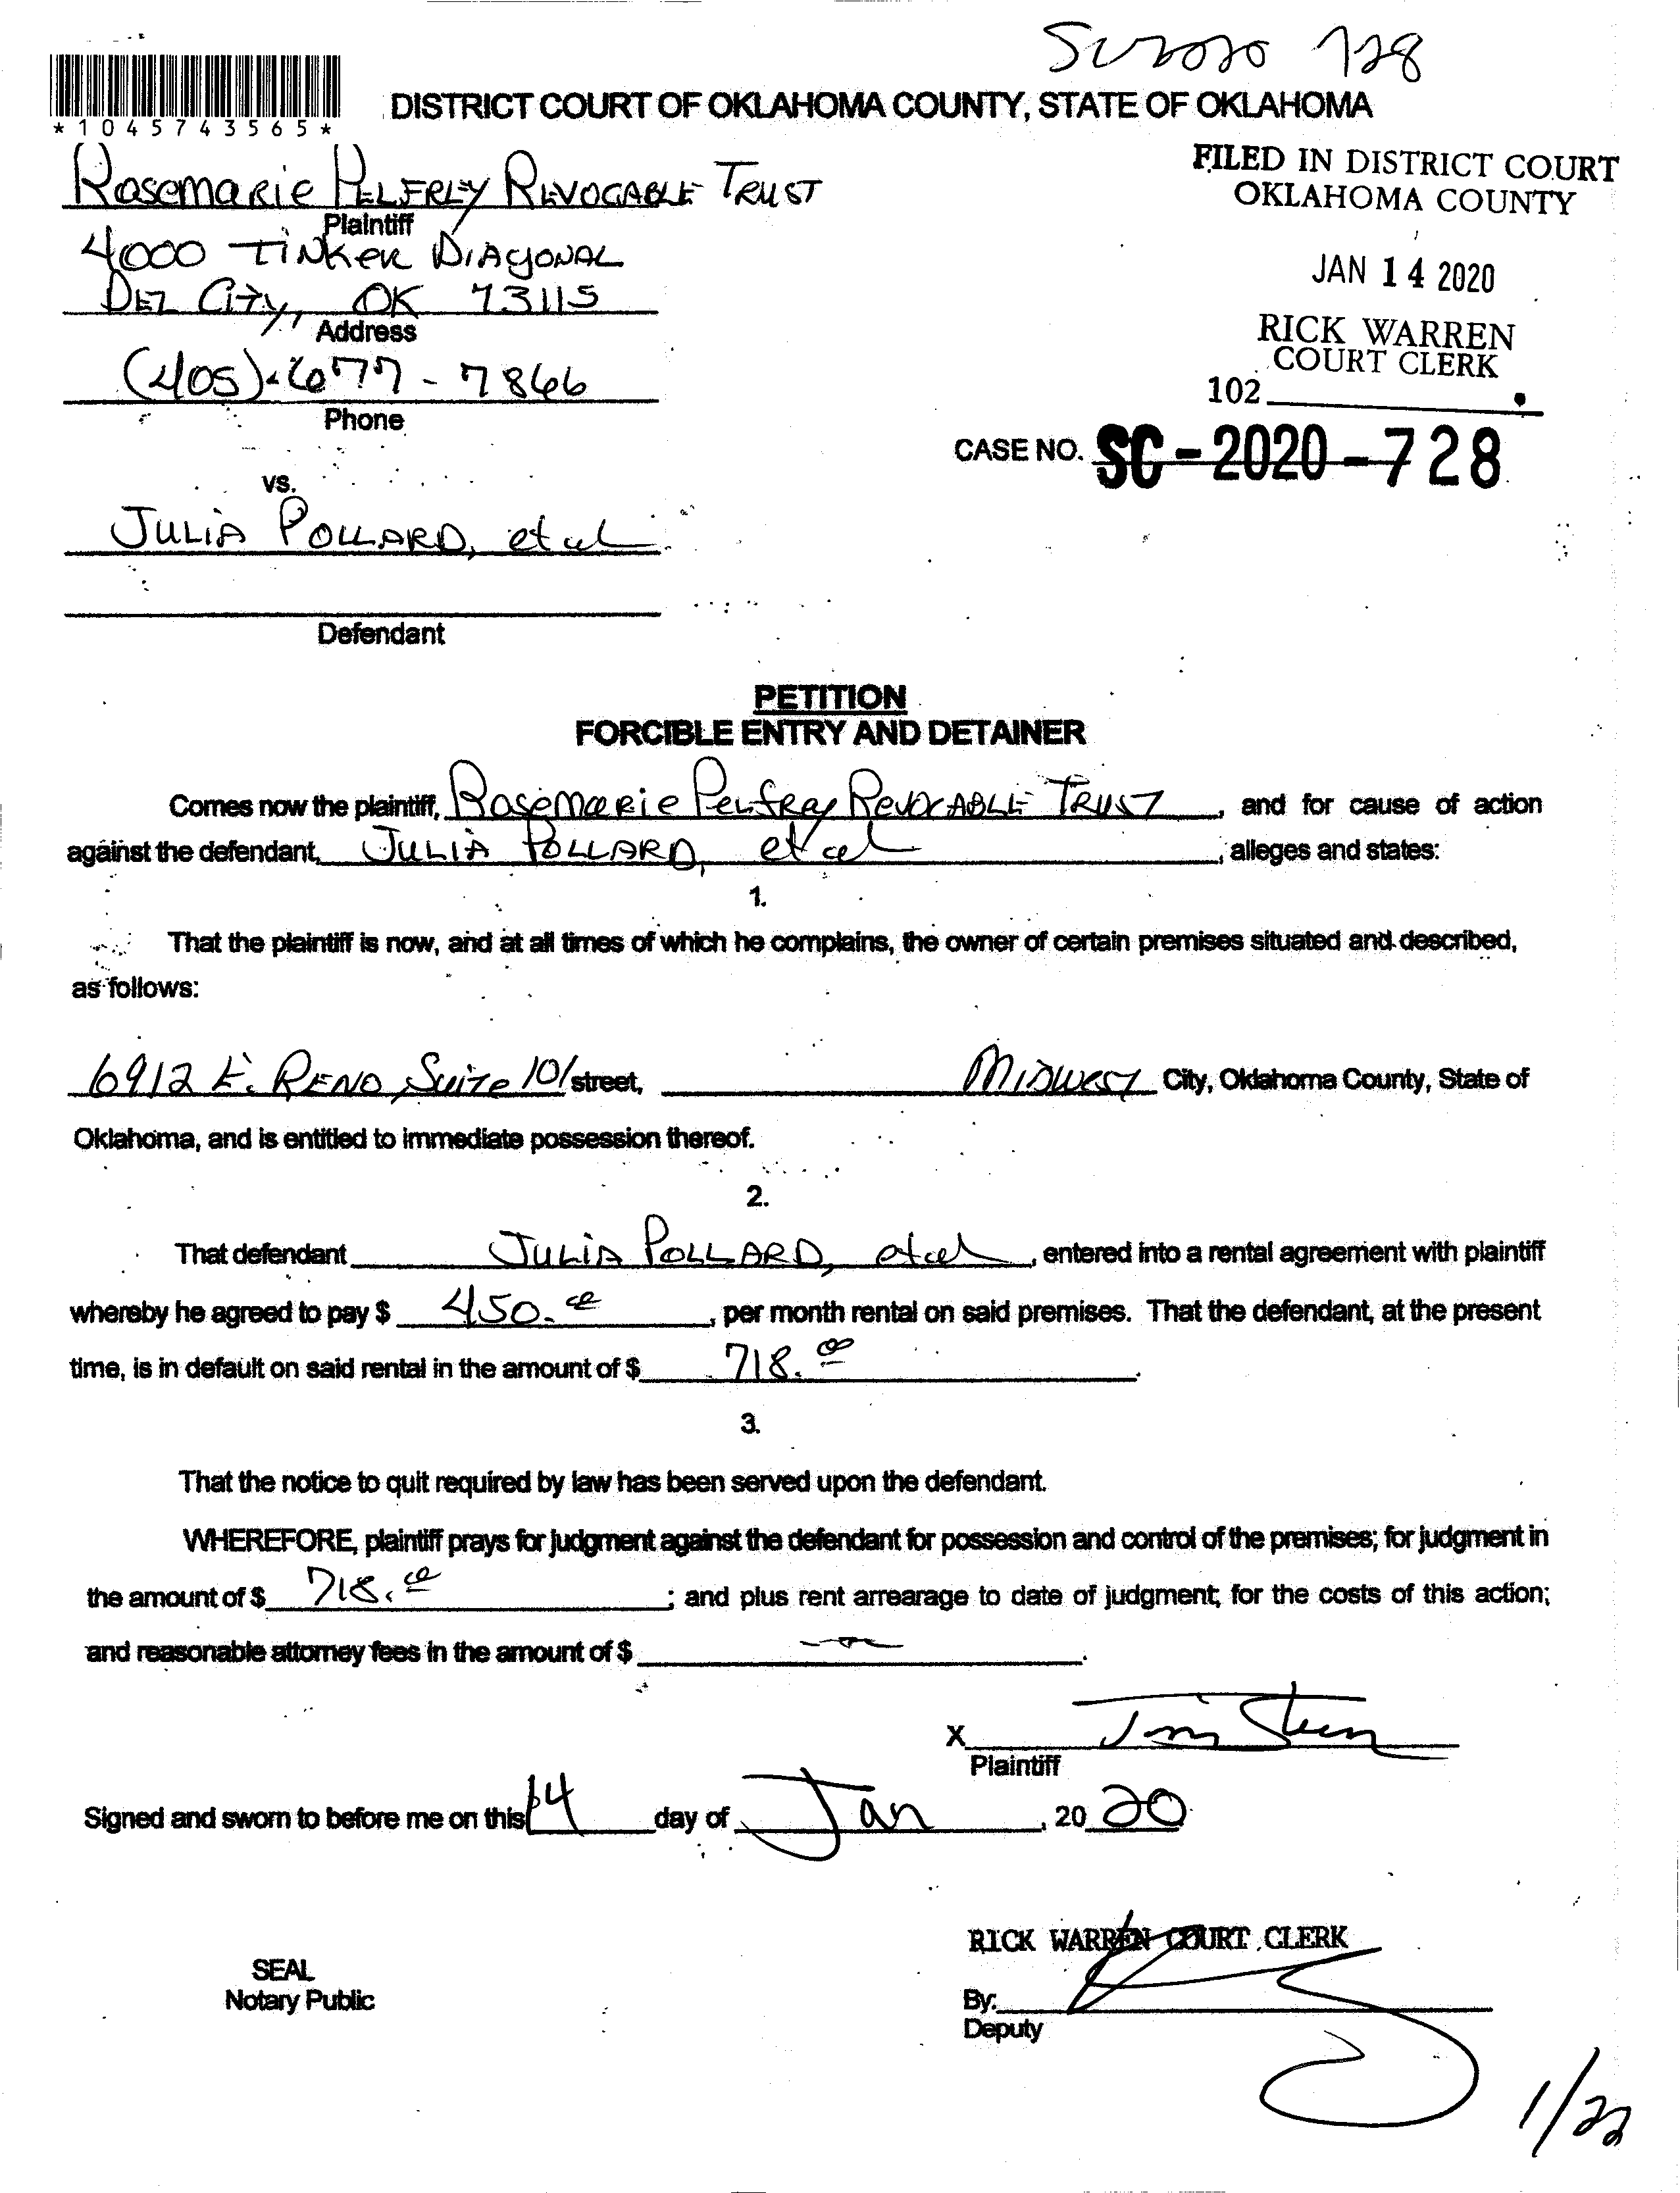 SC 2020 728
*1045743565*
DISTRICT COURT OF OKLAHOMA COUNTY, STATE OF OKLAHOMA
FILED IN DISTRICT COURT
OKLAHOMA COUNTY
JAN 14 2020
RICK WARREN
COURT CLERK
102
CASE NO. SC-2020-728
Rosemarie Pelfrey Revocable Trust
Plaintiff
4000 Tinker Diagonal
Del City, OK 73115
Address
(405)-677-7866
Phone
vs.
Julia Pollard, et al
Defendant
PETITION
FORCIBLE ENTRY AND DETAINER
Comes now the plaintiff, Rosemarie Pelfrey Revocable Trust, and for cause of action
against the defendant, Julia Pollard, et al, alleges and states:
1.
That the plaintiff is now, and at all times of which he complains, the owner of certain premises situated and described,
as follows:
6912 E. Reno, Suite 101 street, Midwest City, Oklahoma County, State of
Oklahoma, and is entitled to immediate possession thereof.
2.
That defendant Julia Pollard, et al, entered into a rental agreement with plaintiff
whereby he agreed to pay $ 450.00, per month rental on said premises. That the defendant, at the present
time, is in default on said rental in the amount of $ 718.00.
3.
That the notice to quit required by law has been served upon the defendant.
WHEREFORE, plaintiff prays for judgment against the defendant for possession and control of the premises; for judgment in
the amount of $ 718.00; and plus rent arrearage to date of judgment; for the costs of this action;
and reasonable attorney fees in the amount of $
X
Plaintiff
Signed and sworn to before me on this 14 day of Jan, 2020
RICK WARREN COURT CLERK
SEAL
Notary Public
By:
Deputy
1/22